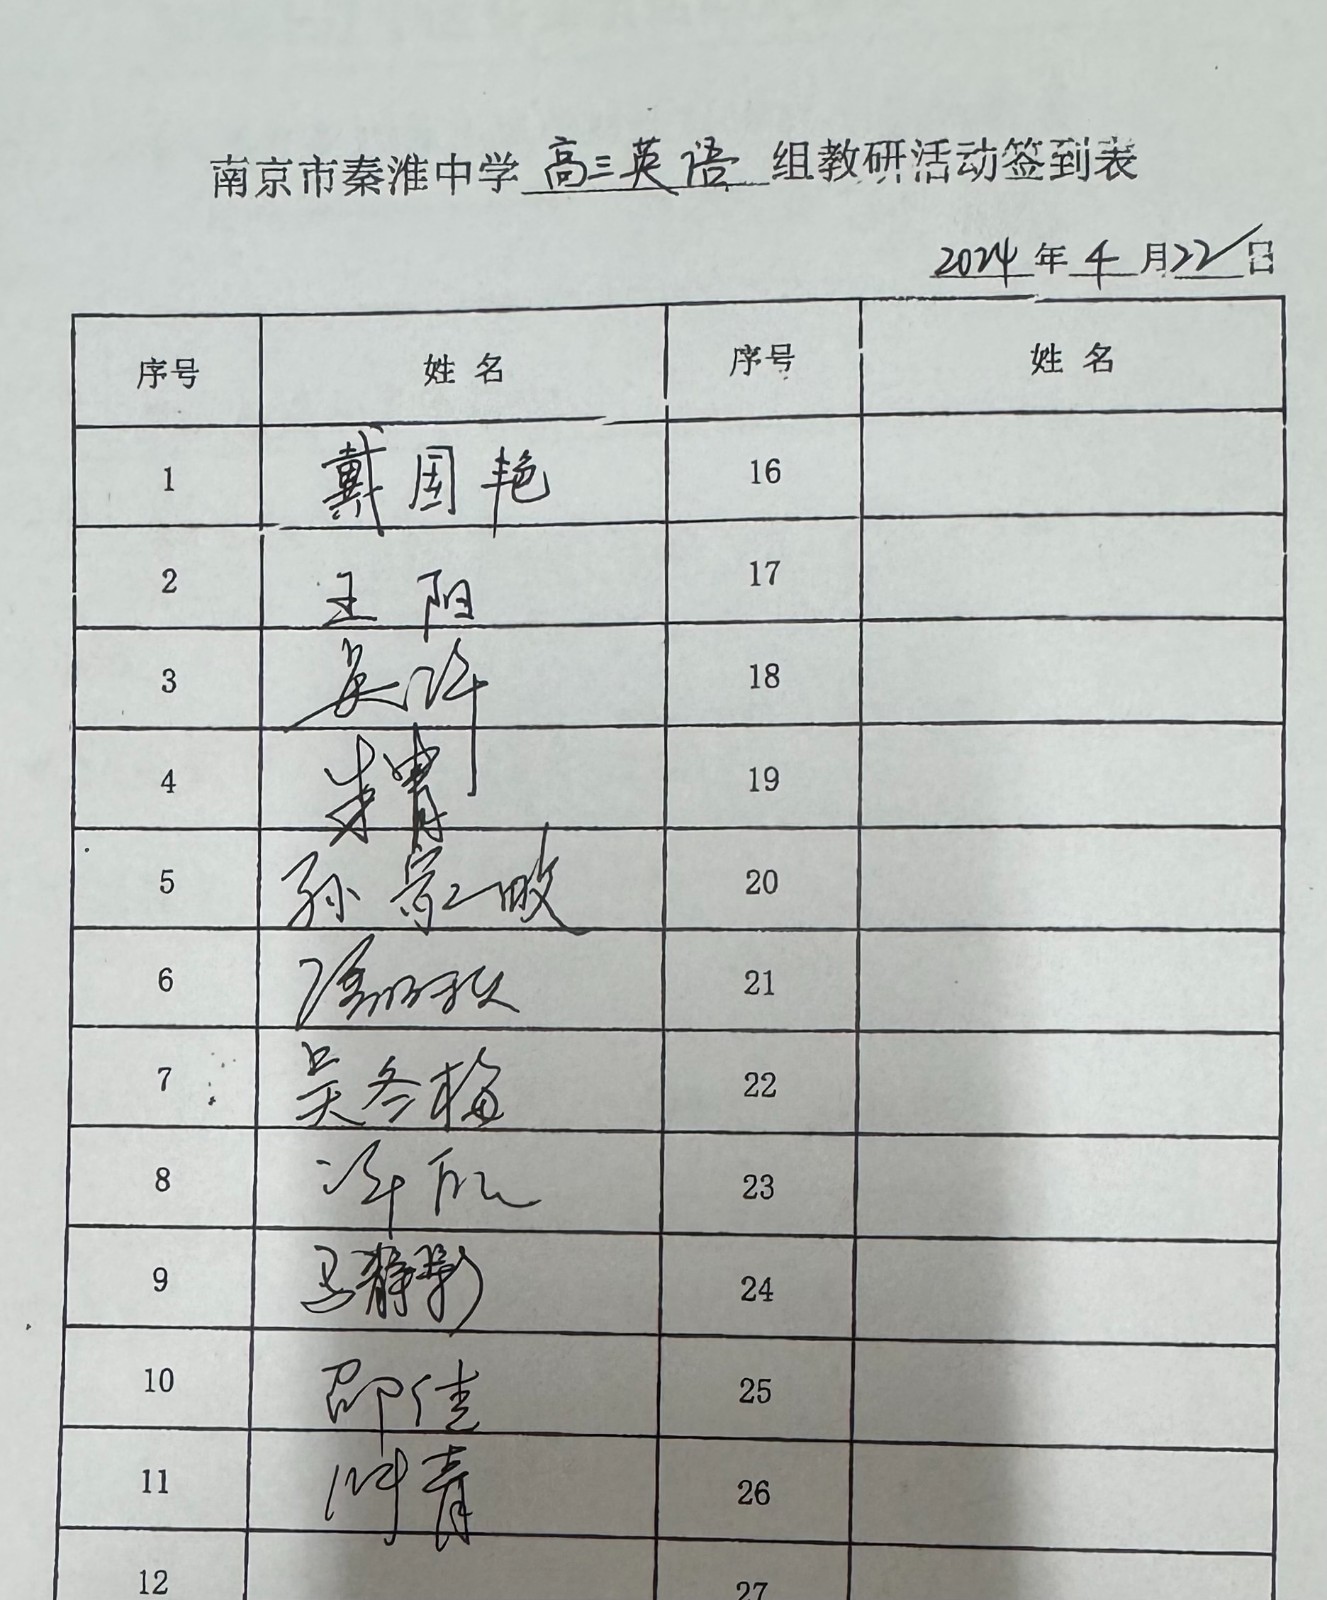 南京市秦淮中学 高三英语 组教研活动签到表
2024 年 4 月 22 日
序号 姓名 序号 姓名
1 戴国艳 16
2 王阳 17
3 吴许 18
4 朱青 19
5 孙 20
6 21
7 吴冬梅 22
8 23
9 马静 24
10 邵佳 25
11 青 26
12 27